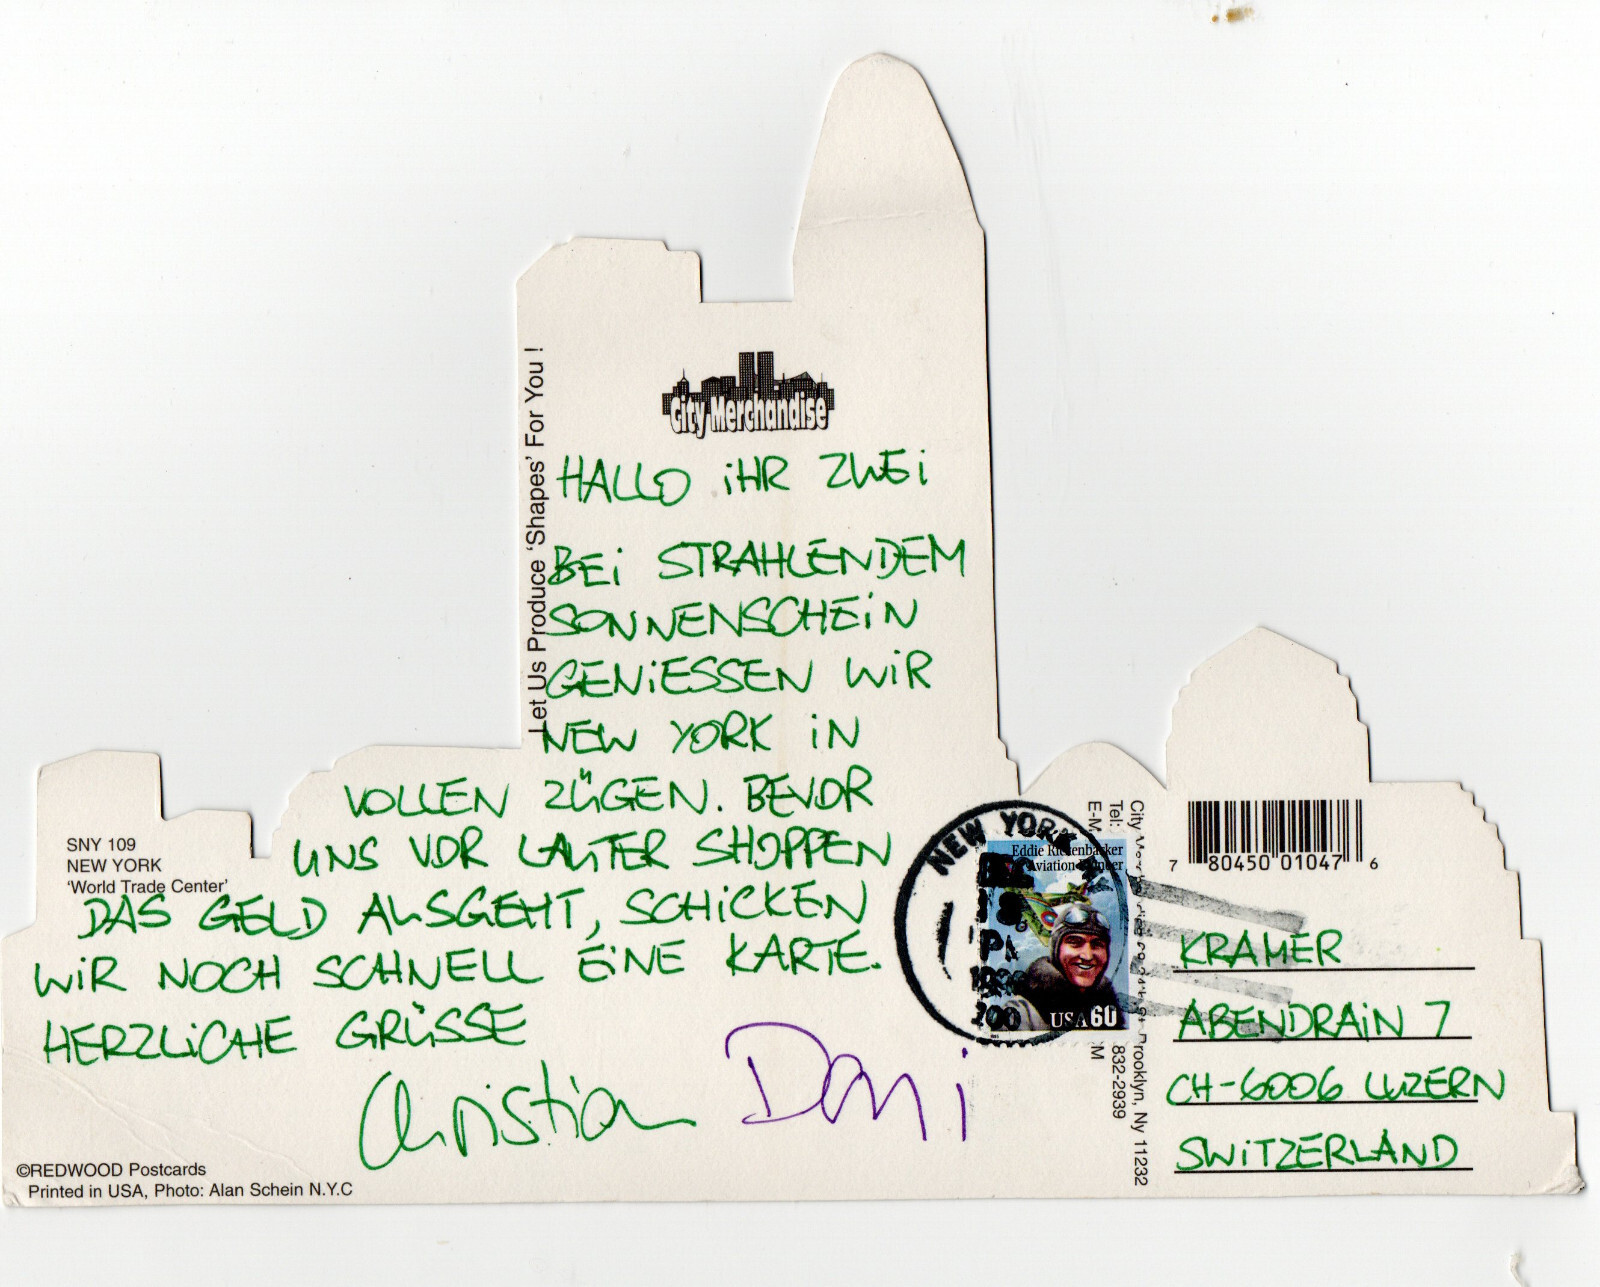 City Merchandise
Let Us Produce 'Shapes' For You !
HALLO iHR ZWEi
BEi STRAHLENDEM
SONNENSCHEiN
GENiESSEN WiR
NEW YORK iN
VOLLEN ZÜGEN. BEVOR
UNS VOR LAUTER SHOPPEN
DAS GELD AUSGEHT, SCHiCKEN
WiR NOCH SCHNELL EiNE KARTE.
HERZLiCHE GRÜSSE
Christian Dani
SNY 109
NEW YORK
'World Trade Center'
©REDWOOD Postcards
Printed in USA, Photo: Alan Schein N.Y.C
NEW YORK
Eddie Rickenbacker
Aviation Pioneer
USA 60
City
Tel: 832-2939
Brooklyn, Ny 11232
7 80450 01047 6
KRAMER
ABENDRAiN 7
CH-6006 LUZERN
SWiTZERLAND